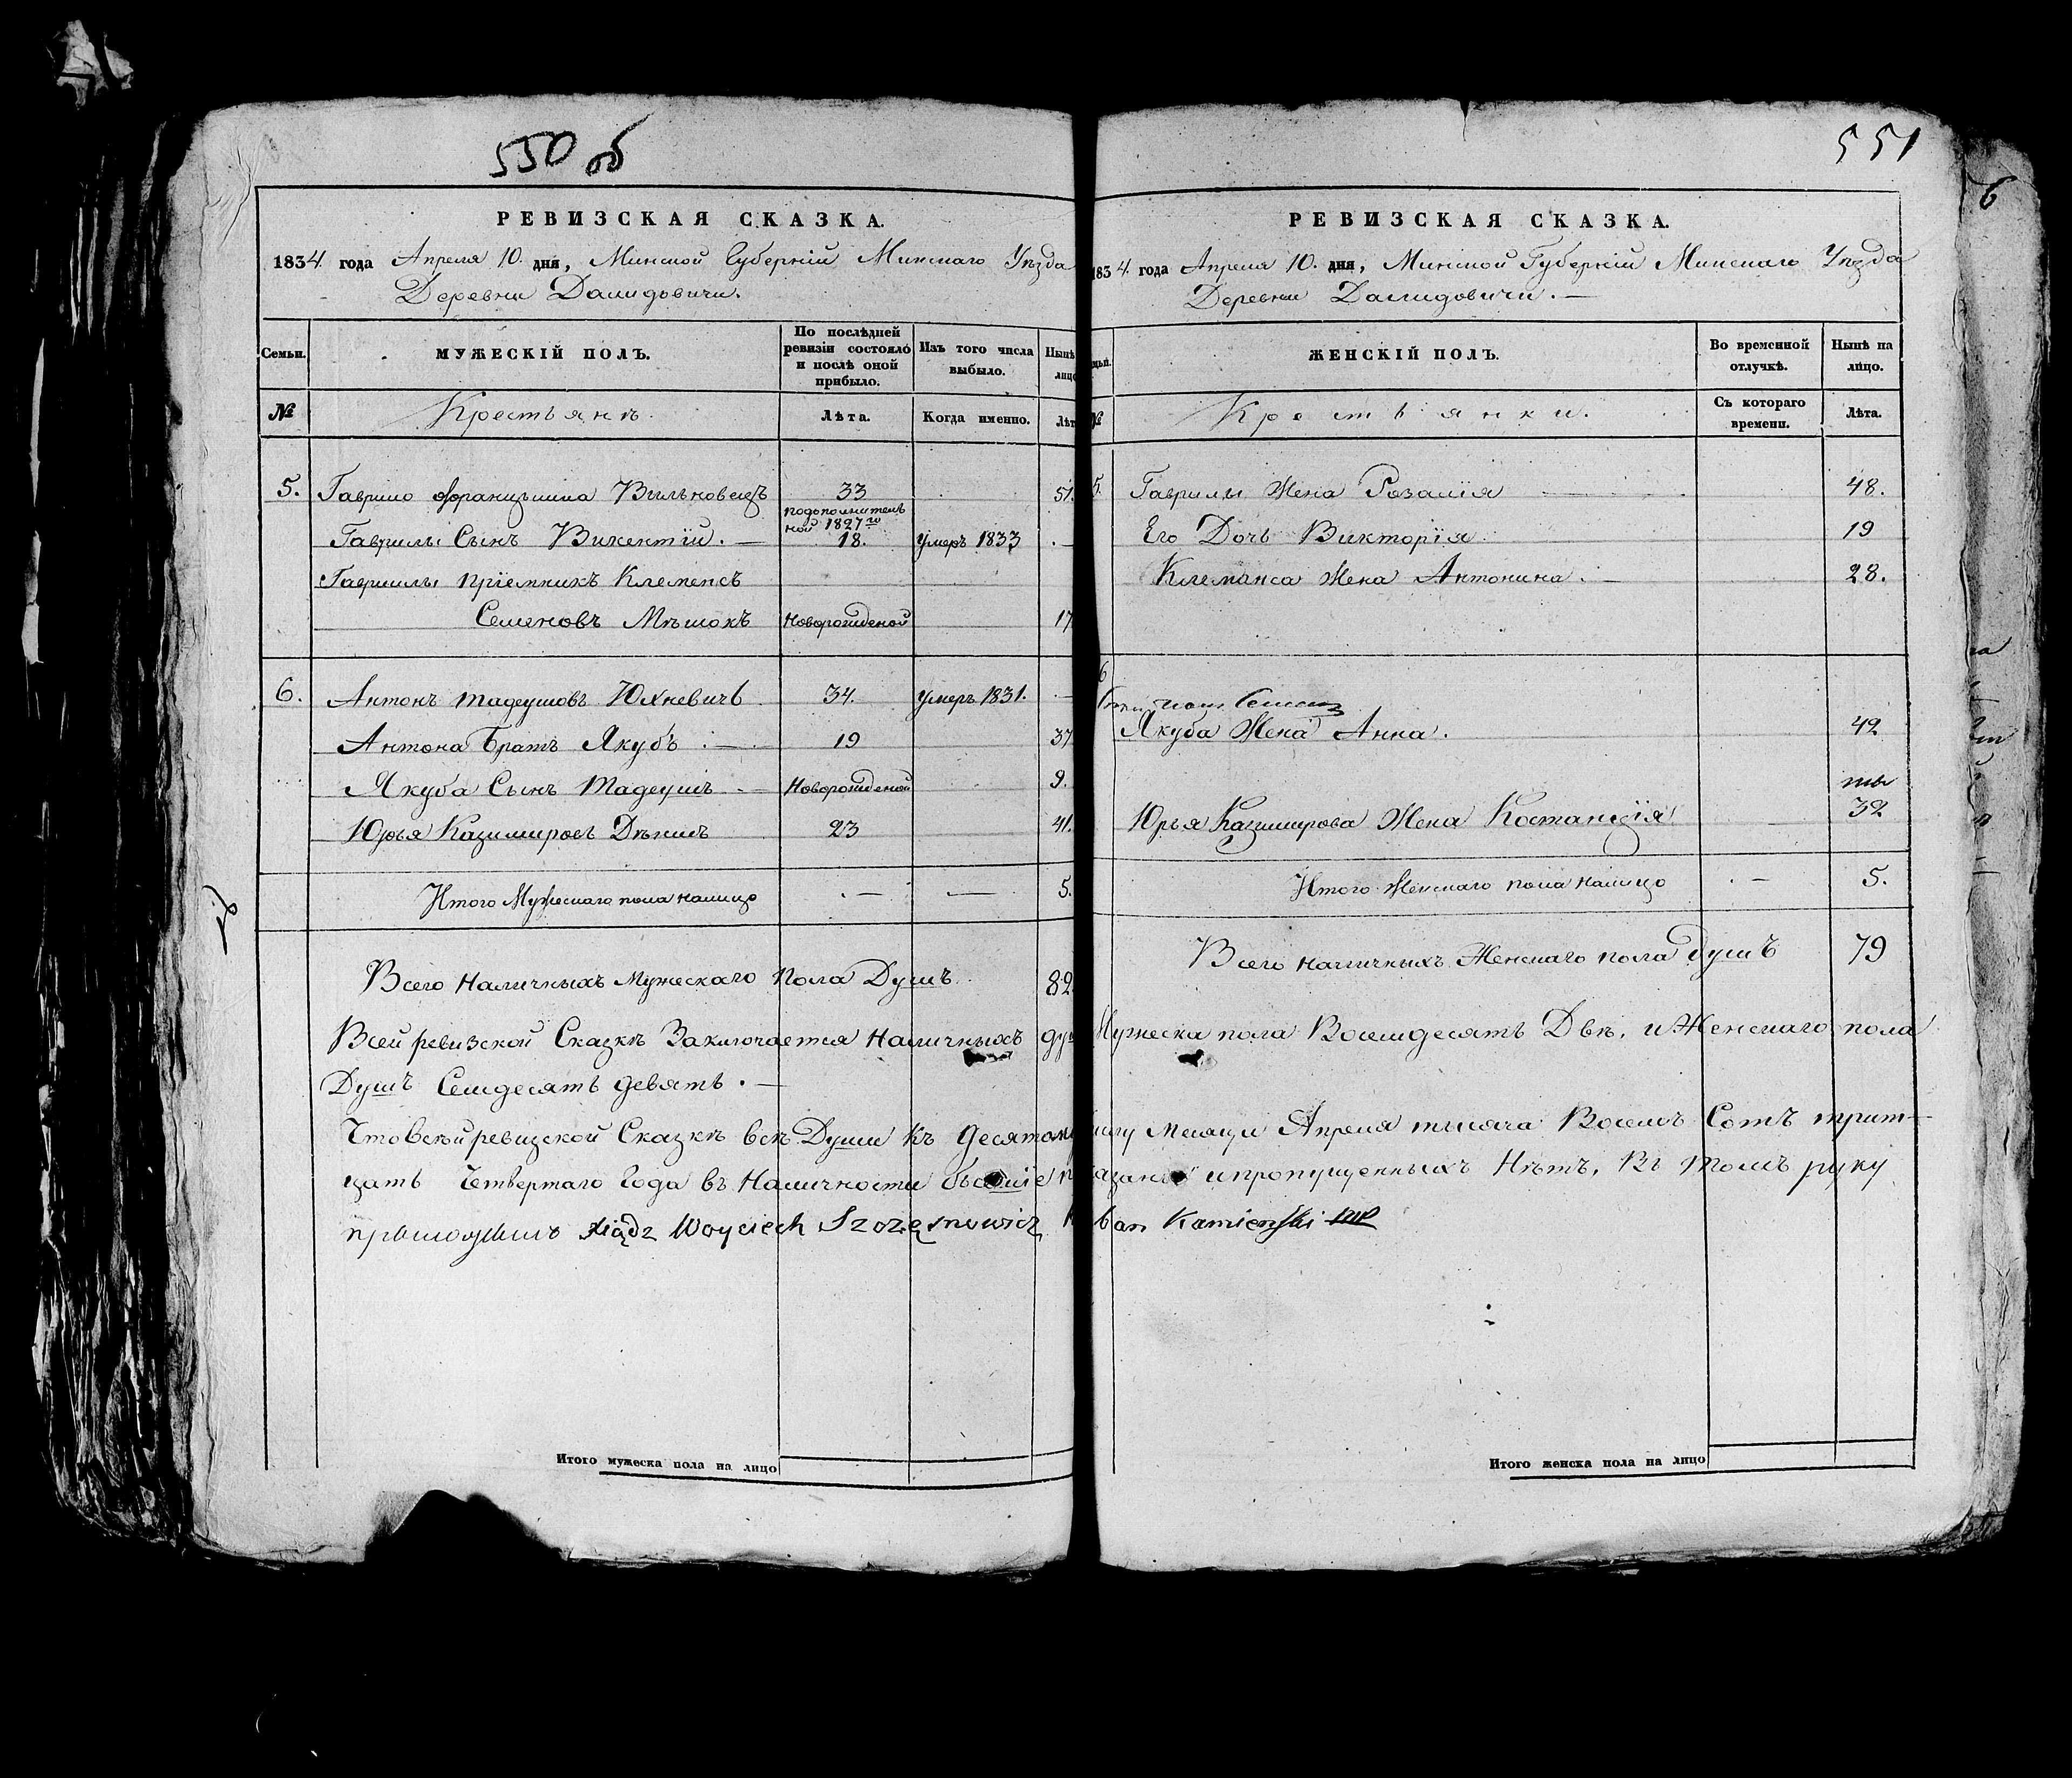 550 об
РЕВИЗСКАЯ СКАЗКА.
1834. года Апреля 10. дня, Минской Губерніи Минскаго Уѣзда
Деревни Далидовичи.
Семьи. МУЖЕСКІЙ ПОЛЪ. По послѣдней ревизіи состояло и послѣ оной прибыло. Изъ того числа выбыло. Нынѣ лицо
№ Крестьянъ. Лѣта. Когда именно. Лѣт
5. Гаврило Францышка Вильковецъ 33 51.
подополнитель
ной 1827го
Гаврилы Сынъ Викентій. — 18. Умеръ 1833 . —
Гаврилы Пріемникъ Клеменсъ
Семеновъ Мѣшокъ Новорожденой 17
6. Антонъ Тадеушовъ Юхневичъ 34. Умеръ 1831. . —
Антона Братъ Якубъ . — 19 37
Якуба Сынъ Тадеушъ — Новорожденой 9.
Юрья Казимировъ Дѣнисъ 23 41.
Итого Мужескаго пола налицо . — — 5.
Всего Наличныхъ Мужескаго Пола Душъ 82
Всей ревизской Сказкѣ Заключается Наличныхъ душ
Душъ Семдесятъ девять. —
Что Всѣй ревизской Сказкѣ всѣ Души къ Десятому
цать Четвертаго Года въ Наличности бывшіе п
приложилъ Xiądz Woyciech Szczęsnowicz
Итого мужеска пола на лицо
551
РЕВИЗСКАЯ СКАЗКА.
1834. года Апреля 10. дня, Минской Губерніи Минскаго Уѣзда
Деревни Далидовичи. —
ЖЕНСКІЙ ПОЛЪ. Во временной отлучкѣ. Нынѣ на лицо.
№ Крестьянки. Съ котораго времени. Лѣта.
5. Гаврилы Жена Розалія 48.
Его Дочь Викторія 19
Клеманса Жена Антонина. — 28.
6
Якуба Жена Анна. 42
Юрья Казимирова Жена Костанція 32
Итого Женскаго пола налицо . — 5.
Всего наличныхъ Женскаго пола душъ 79
Мужеска пола Восемдесятъ Двѣ, и Женскаго пола
числу Месяца Апреля тысяча Восемъ Сотъ трит-
и пропущенныхъ Нѣтъ, Въ томъ руку
ban Kamieński
Итого женска пола на лицо
6